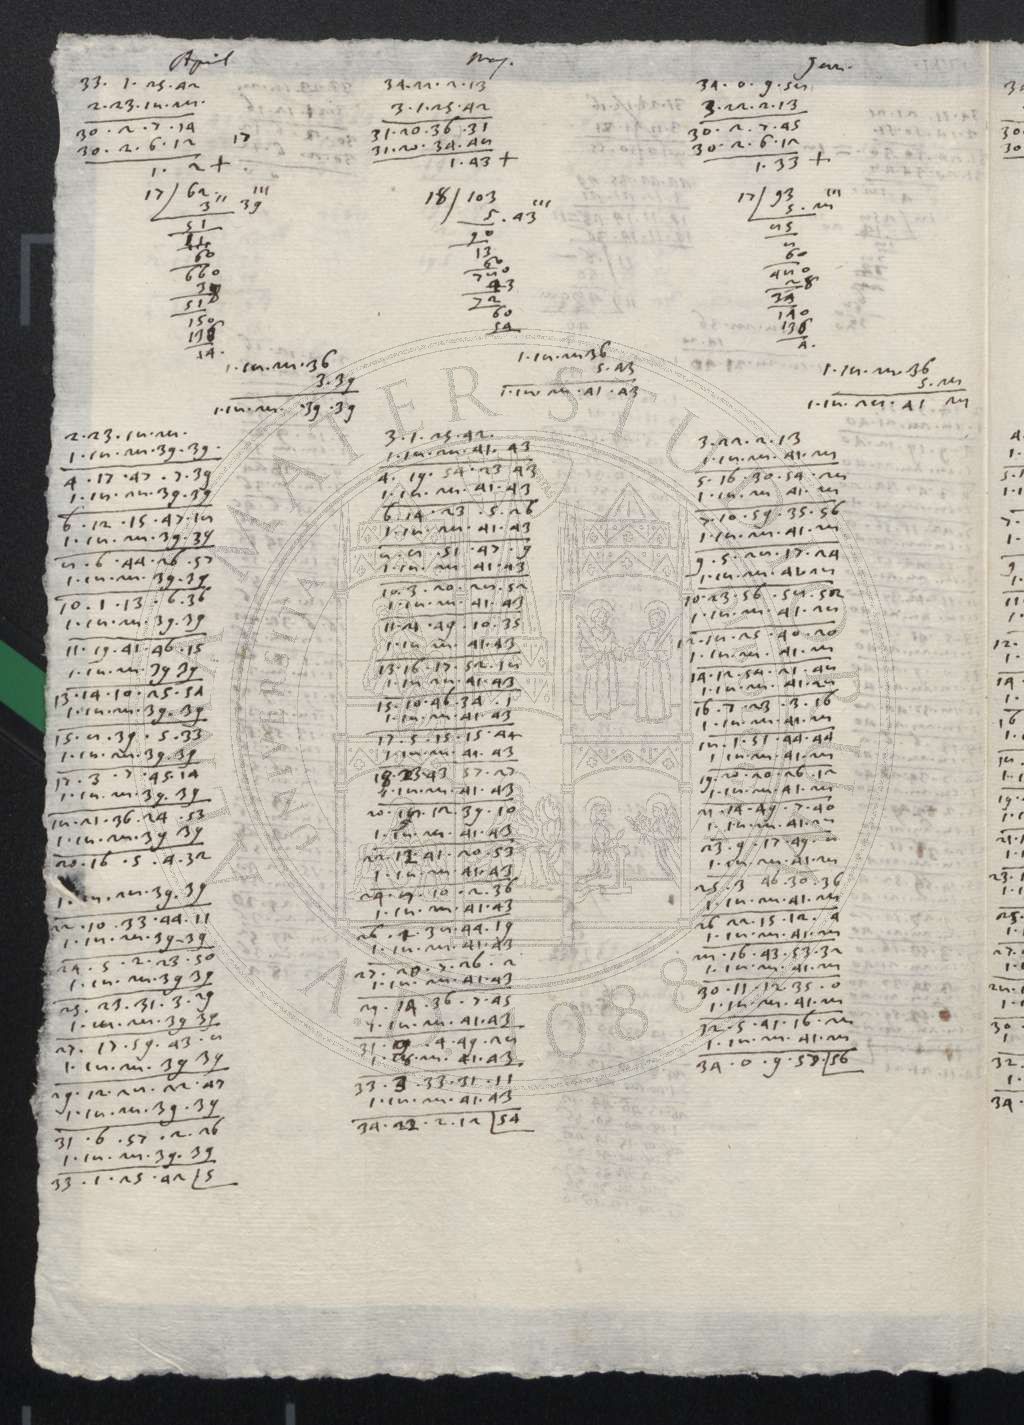 April
33. 1. 25. 42
2. 23. 18. 28.
30. 2. 7. 14
30. 2. 6. 12
17
1. 2 +
17 / 62
3'' 39'''
51
11
60
660
38
51
150
136
14.
1. 18. 28. 36
3. 39
1. 18. 28. 39. 39
2. 23. 18. 28.
1. 18. 28. 39. 39.
4. 17. 47. 7. 39
1. 18. 28. 39. 39
6. 12. 15. 47. 18
1. 18. 28. 39. 39
8. 6. 44. 26. 57
1. 18. 28. 39. 39
10. 1. 13. 6. 36
1. 18. 28. 39. 39
11. 19. 41. 46. 15
1. 18. 28. 39 39
13. 14. 10. 25. 54
1. 18. 28. 39. 39
15. 8. 39. 5. 33
1. 18. 28. 39. 39
17. 3. 7. 45. 14
1. 18. 28. 39. 39
18. 21. 36. 24. 53
1. 18. 28. 39 39
20. 16. 5. 4. 32
1. 18. 28. 39. 39
22. 10. 33. 44. 11
1. 18. 28. 39. 39
24. 5. 2. 23. 50
1. 18. 28. 39 39
25. 23. 31. 3. 29
1. 18. 28. 39 39
27. 17. 59. 43. 8
1. 18. 28. 39 39
29. 12. 28. 22. 47
1. 18. 28. 39. 39
31. 6. 57. 2. 26
1. 18. 28. 39. 39
33. 1. 25. 42 | 5
May.
34. 22. 2. 13
3. 1. 25. 42
31. 20. 36. 31
31. 20. 34. 48
1. 43 +
18 / 103
5. 43'''
90
13
60
780
43
72
60
54
1. 18. 28 36
5. 43
1. 18. 28. 41. 43
3. 1. 25. 42.
1. 18. 28. 41. 43
4. 19. 54. 23 43
1. 18. 28. 41. 43
6. 14. 23. 5. 26
1. 18. 28. 41. 43
8. 8. 51. 47. 9
1. 18. 28. 41. 43
10. 3. 20. 28. 52
1. 18. 28. 41. 43
11. 21. 49. 10. 35
1. 18. 28. 41. 43
13. 16. 17. 52. 18
1. 18. 28. 41. 43
15. 10. 46. 34. 1
1. 18. 28. 41. 43
17. 5. 15. 15. 44
1. 18. 28. 41. 43
18. 23. 43 57. 27
1. 18. 28. 41. 43
20. 18. 12. 39. 10
1. 18. 28. 41. 43
22. 12 41. 20. 53
1. 18. 28. 41. 43
24. 7. 10. 2. 36
1. 18. 28. 41. 43
26. 1. 38. 44. 19
1. 18. 28. 41. 43
27. 20. 7. 26. 2
1. 18. 28. 41. 43
29. 14. 36. 7. 45
1. 18. 28. 41. 43
31. 9. 4. 49. 28
1. 18. 28. 41. 43
33. 3. 33. 31. 11
1. 18. 28. 41. 43
34. 22. 2. 12 | 54
Jun.
34. 0. 9. 58
3. 22. 2. 13
30. 2. 7. 45
30. 2. 6. 12
1. 33 +
17 / 93
5. 28'''
85
8
60
480
28
34
140
136
4.
1. 18. 28. 36
5. 28
1. 18. 28. 41 28
3. 22. 2. 13
1. 18. 28. 41. 28
5. 16. 30. 54. 28
1. 18. 28 41. 28
7. 10. 59. 35. 56
1. 18. 28. 41. 28
9. 5. 28. 17. 24
1. 18. 28. 41. 28
10. 23. 56. 58. 52
1. 18. 28. 41. 28
12. 18. 25. 40. 20
1. 18. 28. 41. 28
14. 12. 54. 21. 48
1. 18. 28. 41. 28
16. 7. 23. 3. 16
1. 18. 28. 41. 28
18. 1. 51. 44. 44
1 18. 28. 41. 28
19. 20. 20. 26. 12
1. 18. 28. 41. 28
21. 14. 49. 7. 40
1. 18. 28. 41. 28
23. 9. 17. 49. 8
1. 18. 28. 41. 28
25. 3 46. 30. 36
1. 18. 28. 41. 28
26 22. 15. 12. 4
1. 18. 28. 41. 28
28. 16. 43. 53. 32
1. 18. 28. 41. 28
30. 11. 12. 35. 0
1. 18. 28. 41. 28
32. 5. 41. 16. 28
1. 18. 28. 41. 28
34. 0. 9. 57. | 56
ALMA MATER STUDIORUM
UNIVERSITÀ DI BOLOGNA
A.D. 1088